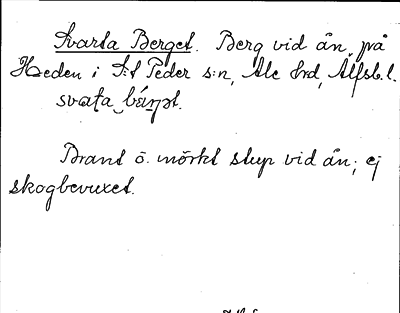 Svarta Berget. Berg vid ån, på
Heden i S:t Peder s:n, Ale hrd, Älfsb. l.
svata_bárjet.
Brant o. mörkt stup vid ån; ej
skogbevuxet.